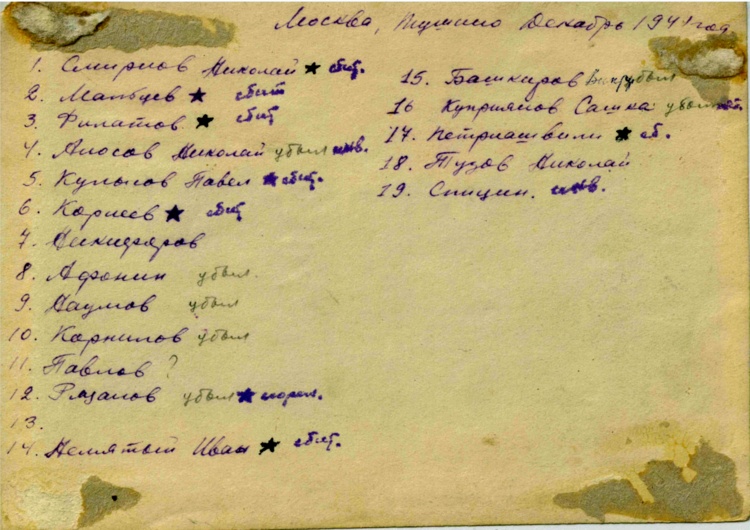 Москва, Тушино Декабрь 1941 год
1. Смирнов Николай ★ сбит.
2. Мальцев ★ сбит
3. Филатов. ★ сбит
4. Аносов Николай убыл инв.
5. Павел ★ сбит.
6. Корнеев ★ сбит
7. Никифоров
8. Афонин убыл.
9. Наумов убыл
10. Корнилов убыл
11. Павлов ?
12. Рязанов убыл ★
13.
14. Немятый Иван ★ сбит.
15. Башкиров убыл
16 Куприянов Сашка убыл
17. ★ сб.
18. Тузов Николай
19. Спицин. инв.